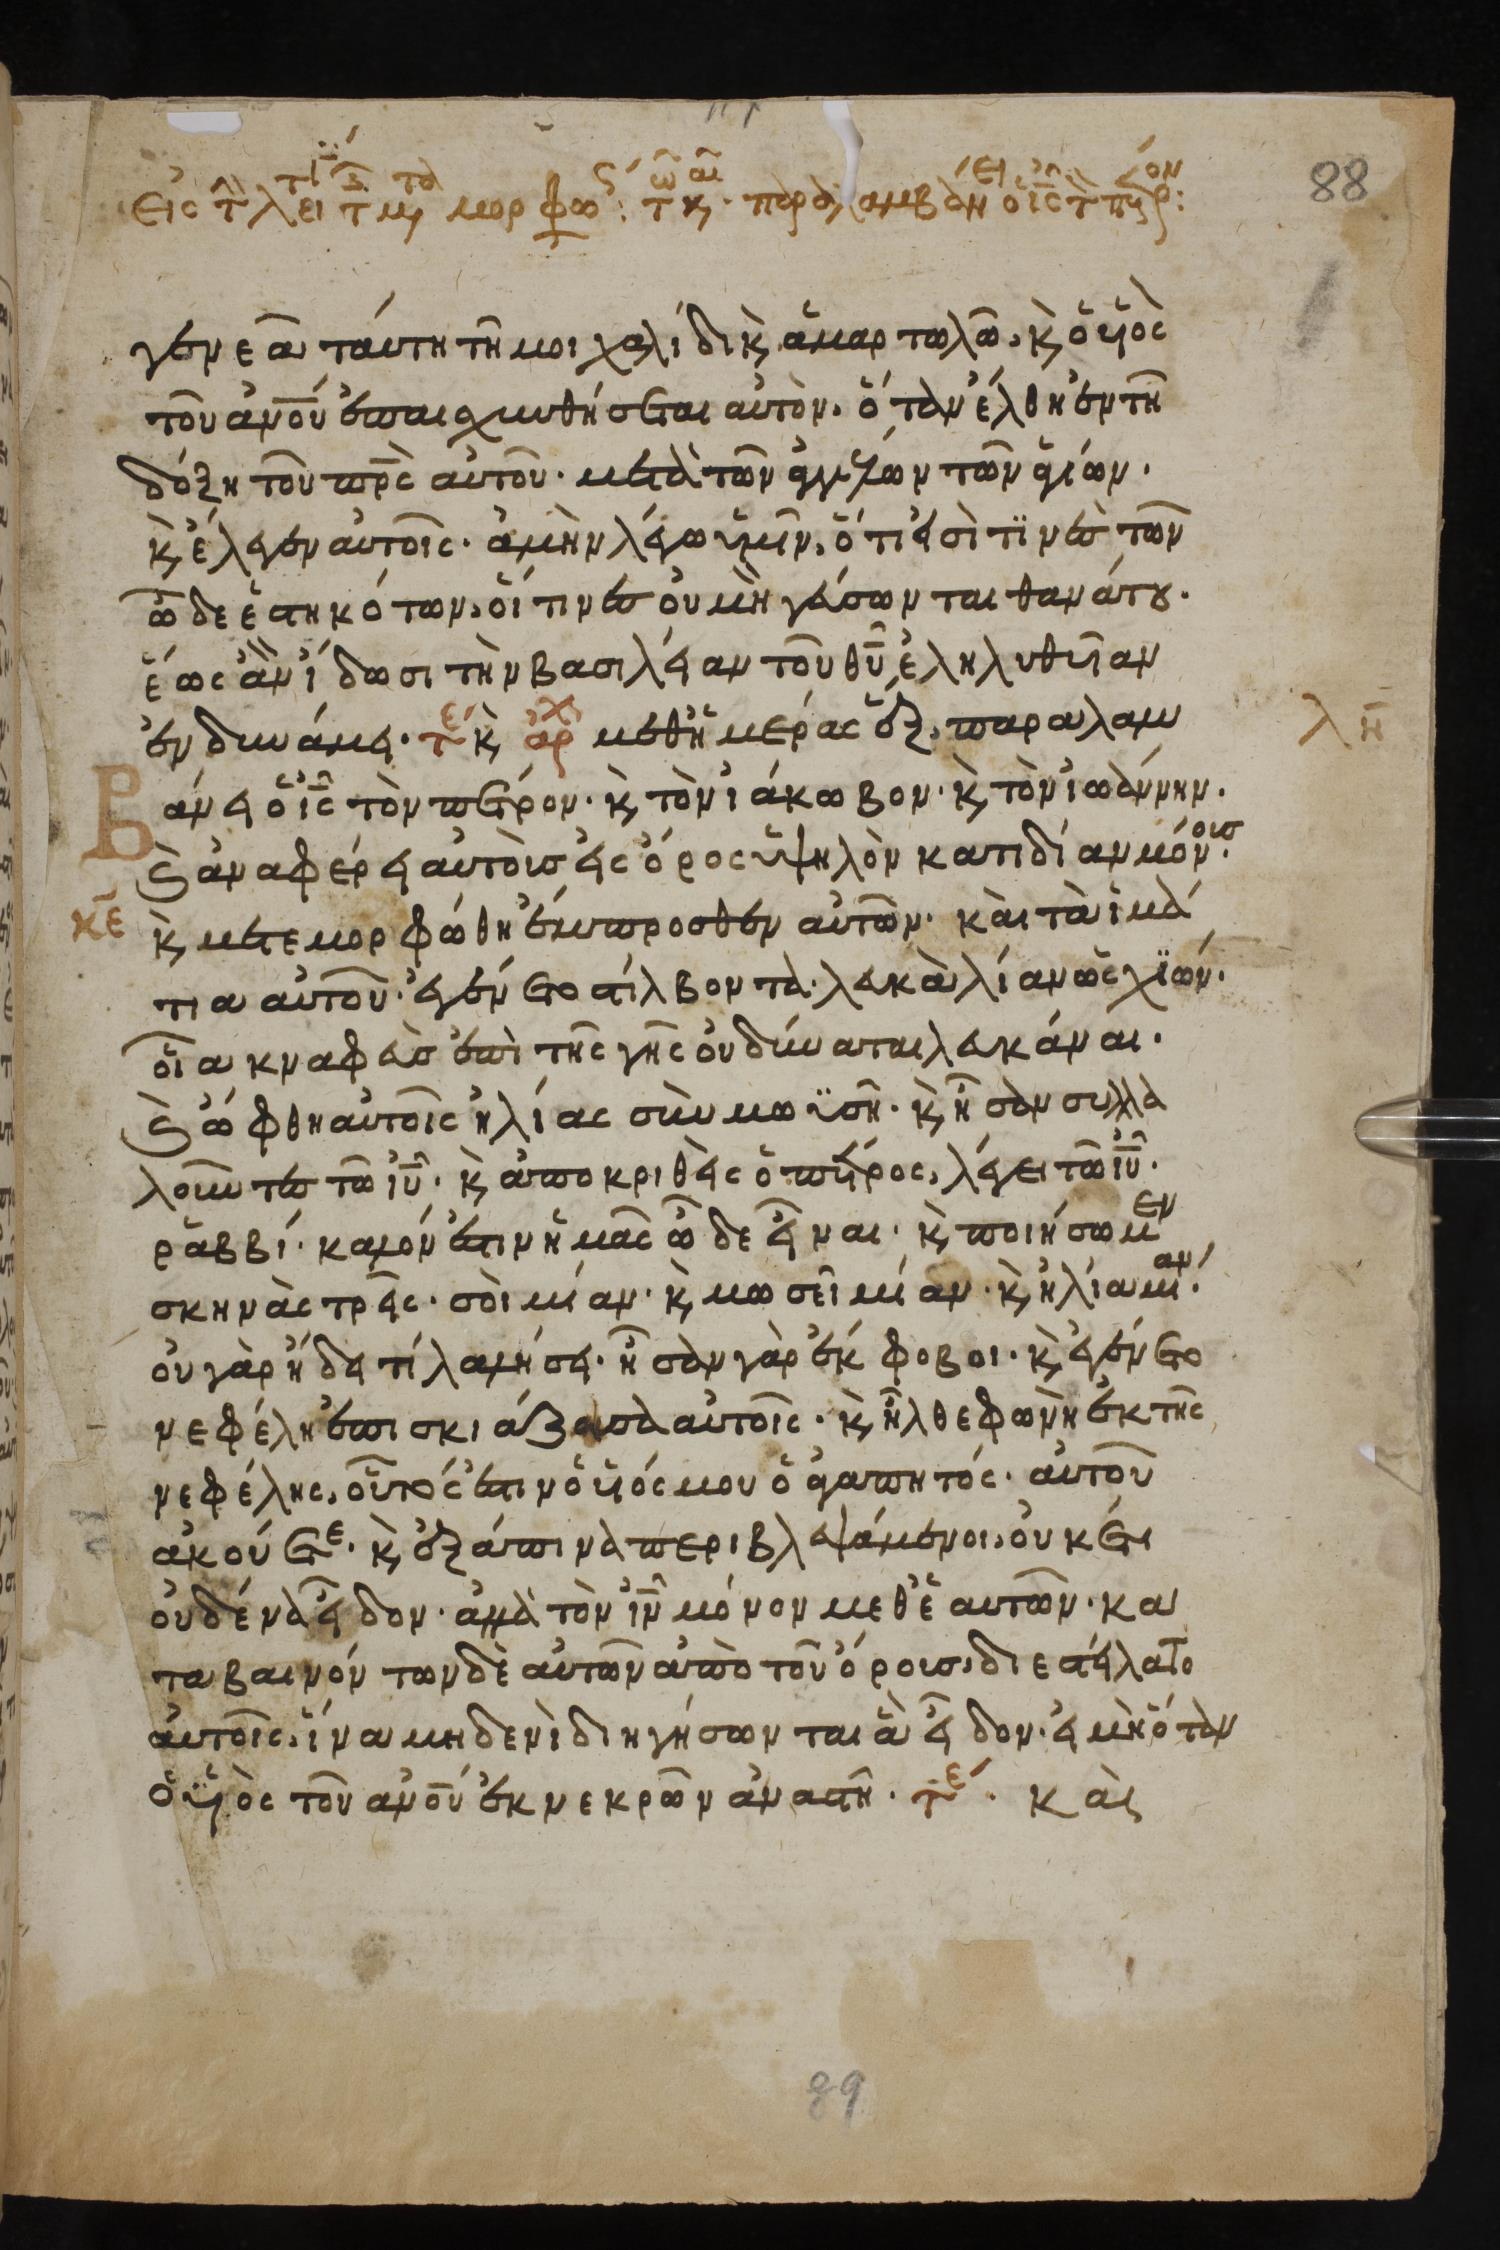 88
γενεᾶ ταύτη τῆ μοιχαλίδι κ̀ ἁμαρτωλῶ. κ̀ ὁ ὑϊὸς
τοῦ ἀν̅ο̅υ̅ ἐπαισχυνθήσεται αὐτὸν. ὅταν ἔλθη ἐν τῆ
δόξη τοῦ π̅ρ̅ς̅ αὐτοῦ· μετὰ τῶν ἀγγέλων τῶν ἁγίων.
κ̀ ἔλεγεν αὐτοῖς· ἀμὴν λέγω ὑμῖν, ὅτι εἰσὶ τινὲς τῶν
ὧδε ἑστηκότων, οἵτινες οὐ μὴ γεύσωνται θανάτου.
ἕως ἂν ἴδωσι τὴν βασιλείαν τοῦ θ̅υ̅ ἐληλυθυῖαν
ἐν δυνάμει· τε κ̀ ἀρχ μεθ' ἡμέρας ἓξ, παραλαμ
βάνει ὁ ι̅ς̅ τὸν πέτρον· κ̀ τὸν ἰάκωβον· κ̀ τὸν ἰωάννην.
λη
κ̀ ἀναφέρει αὐτοὺς εἰς ὄρος ὑψηλὸν κατιδίαν μόνους.
κε
κ̀ μετεμορφώθη ἔμπροσθεν αὐτῶν· καὶ τὰ ἱμά
τια αὐτοῦ· ἐγένετο στίλβοντα· λευκὰ λίαν ὡς χϊών.
οἷα κναφεὺς ἐπὶ τῆς γῆς οὐ δύναται λευκάναι.
κ̀ ὤφθη αὐτοῖς ἠλίας σὺν μωϋσῆ· κ̀ ἦσαν συλλα
λοῦντες τῶ ι̅υ̅· κ̀ ἀποκριθεὶς ὁ πέτρος, λέγει τῶ ι̅υ̅·
ῥαββί· καλόν ἐστιν ἡμᾶς ὧδε εἶναι· κ̀ ποιήσωμεν
σκηνὰς τρεῖς· σοὶ μίαν· κ̀ μωσεῖ μίαν· κ̀ ἠλία μίαν.
οὐ γὰρ ἤδει τί λαλήσει· ἦσαν γὰρ ἔκφοβοι· κ̀ ἐγένετο
νεφέλη ἐπισκιάζουσα αὐτοῖς· κ̀ ἦλθε φωνὴ ἐκ τῆς
νεφέλης, οὗτός ἐστιν ὁ ὑϊός μου ὁ ἀγαπητός· αὐτοῦ
ἀκούετε· κ̀ ἐξάπινα περιβλεψάμενοι, οὐκέτι
οὐδένα εἶδον· ἀλλὰ τὸν ι̅ν̅ μόνον μεθ' ἑαυτῶν· κα
ταβαινόντων δὲ αὐτῶν ἀπὸ τοῦ ὄρους, διεστείλατο
αὐτοῖς, ἵνα μηδενὶ διηγήσωνται ἃ εἶδον· εἰ μὴ ὅταν
ὁ ὑϊὸς τοῦ ἀν̅ο̅υ̅ ἐκ νεκρῶν ἀναστῆ· τε. καὶ
89